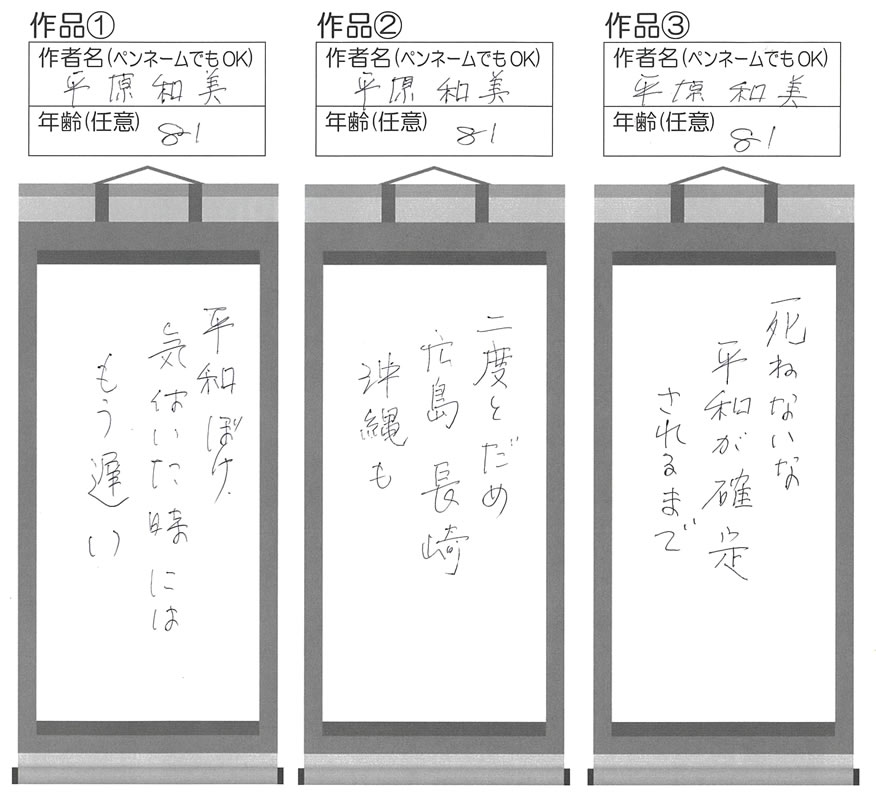 作品①
作者名(ペンネームでもOK)
平原和美
年齢(任意)
81
平和ぼけ
気付いた時には
もう遅い
作品②
作者名(ペンネームでもOK)
平原和美
年齢(任意)
81
二度とだめ
広島長崎
沖縄も
作品③
作者名(ペンネームでもOK)
平原和美
年齢(任意)
81
死ねないな
平和が確定
されるまで